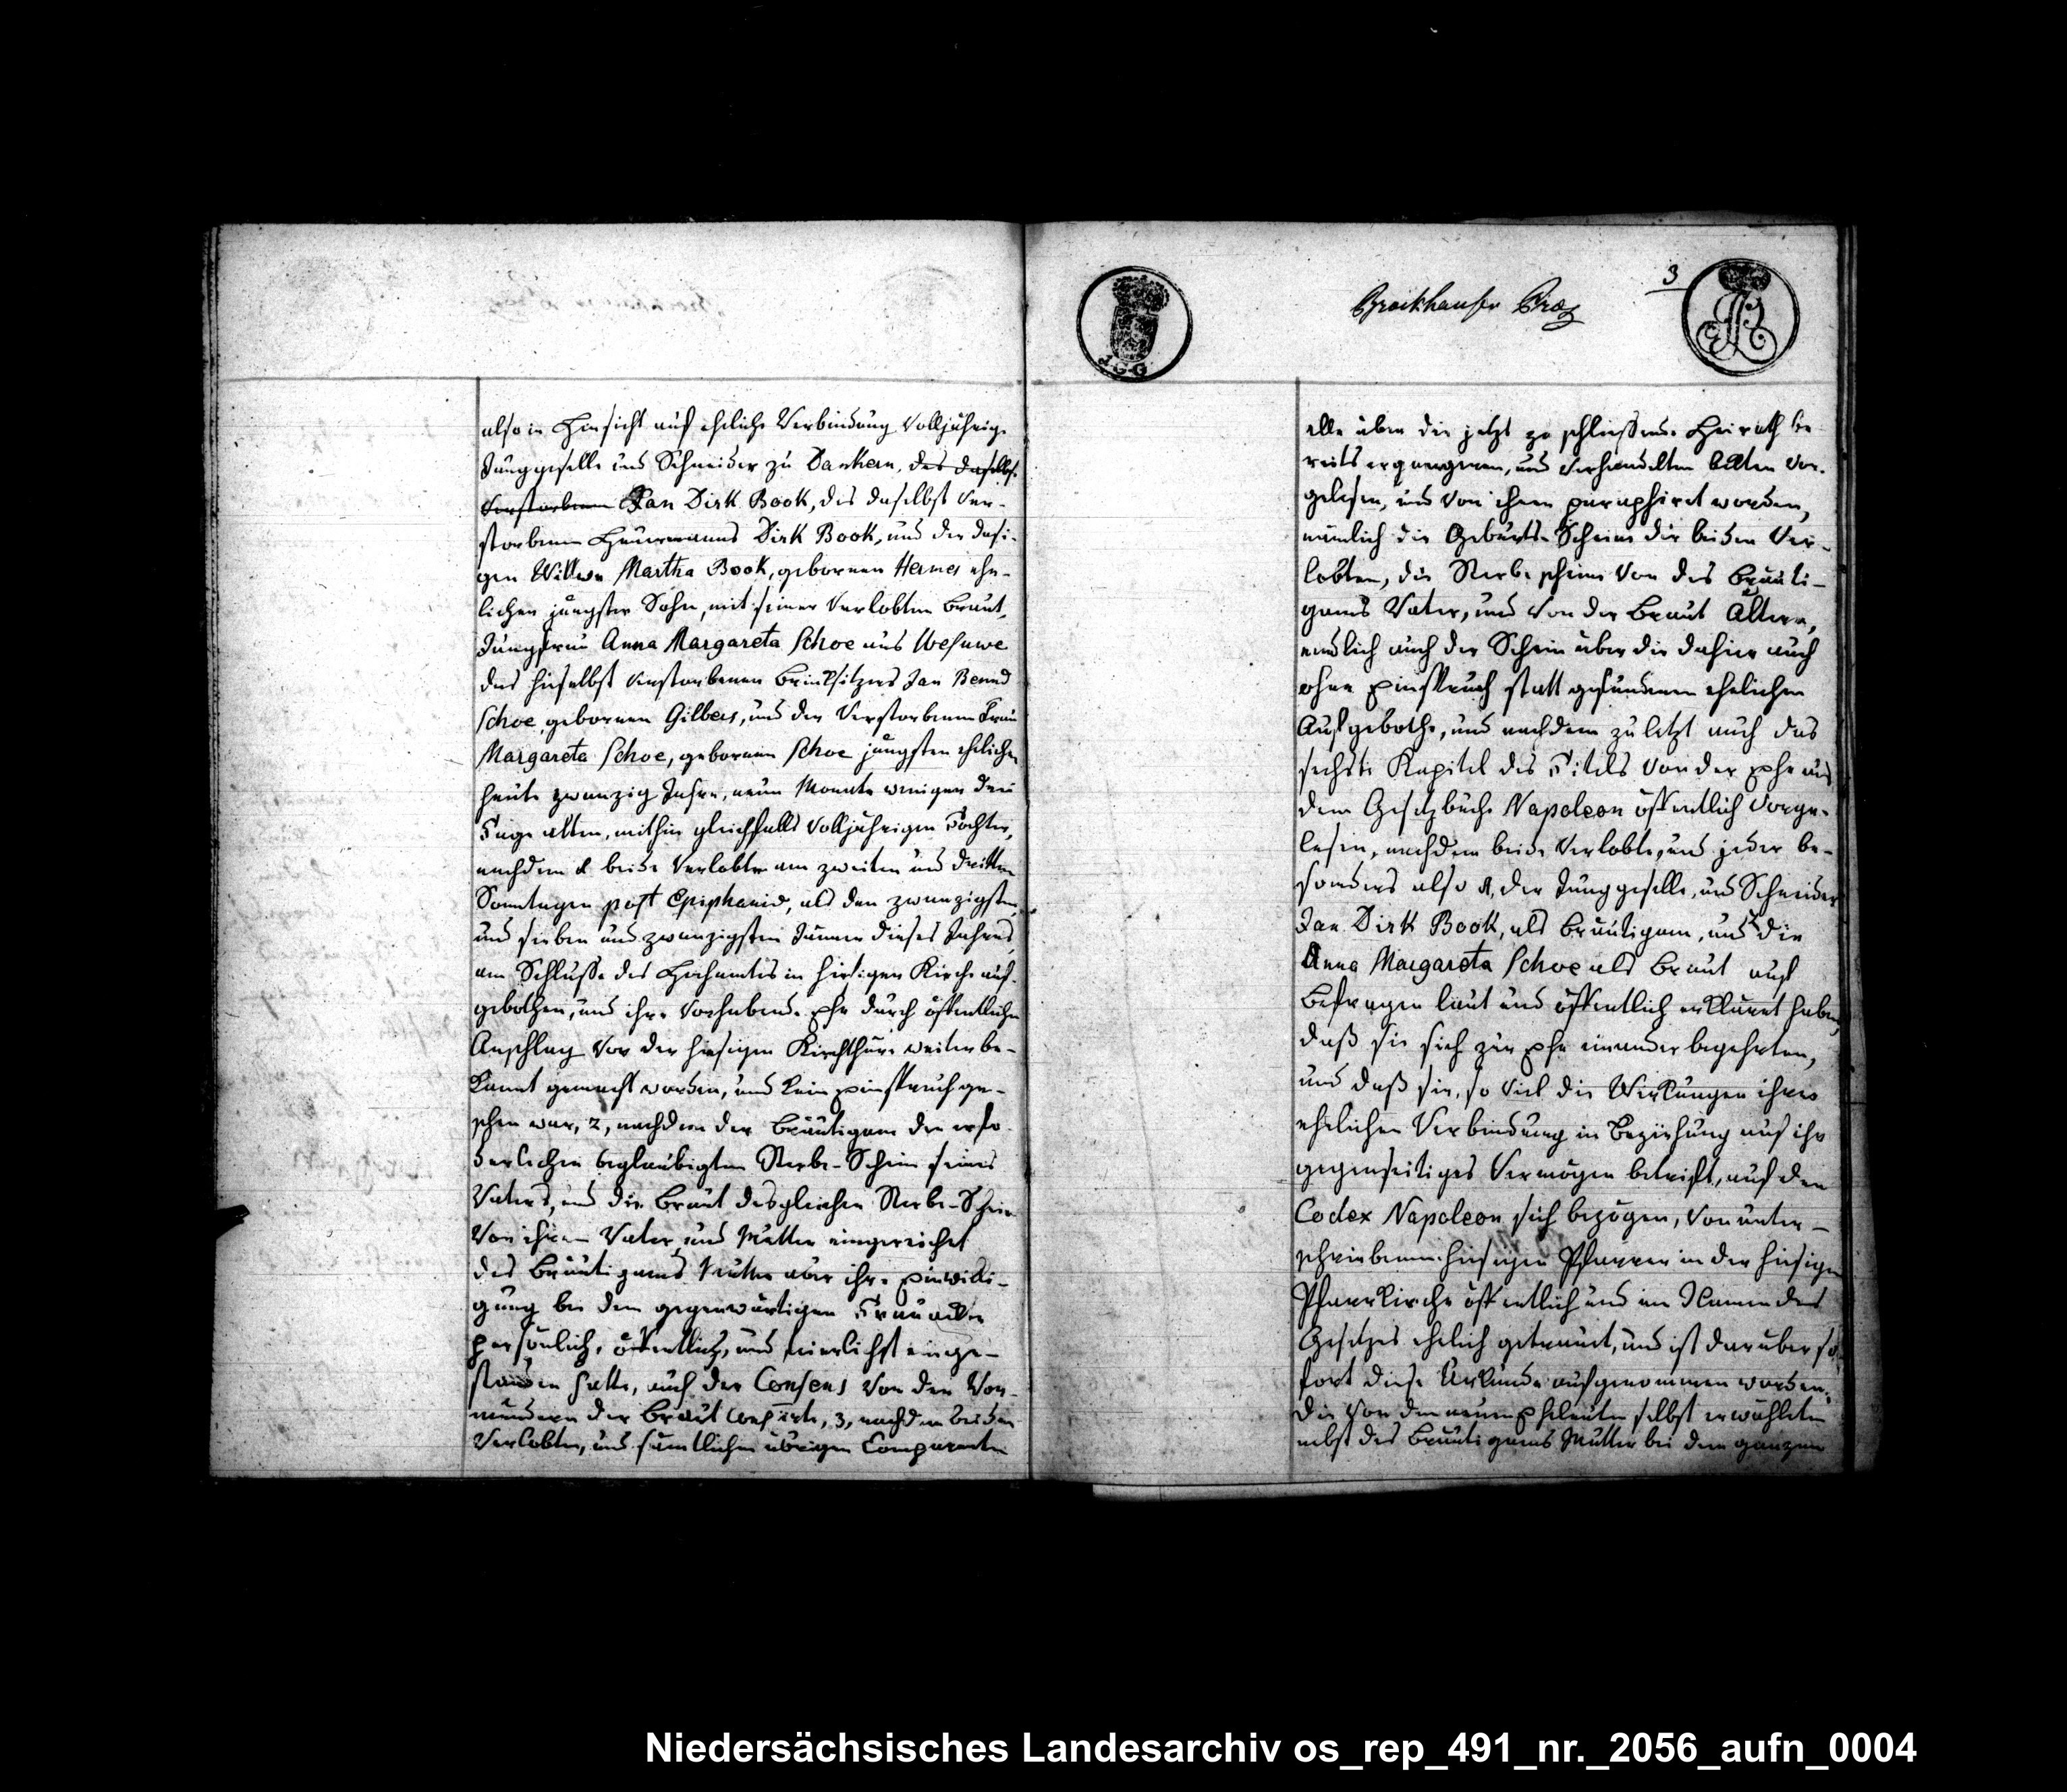 also in Hinsicht auf ehliche Verbindung volljährige
Junggeselle und Schneider zu Dankern, des daselbst
verstorbenen Jan Dirk Book, des daselbst ver-
storbenen Heuermanns Dirk Book, und der dasi-
gen Wittwe Martha Book, gebornen Hermes ehe-
lichen jüngster Sohn, mit seiner verlobten Braut,
Jungfrau Anna Margareta Schoe aus Wesuwe
des hieselbst verstorbenen Brinksitzers Jan Berend
Schoe, gebornen Gilbers, und der verstorbenen Frau
Margareta Schoe, gebornen Schoe jüngsten ehelichen
heute zwanzig Jahre, neun Monate weniger drei
Tage alten, mithin gleichfalls volljährigen Tochter,
nachdem 1 beide Verlobte am zweiten und dritten
Sonntagen post Epiphaniæ, als den zwanzigsten,
und sieben und zwanzigsten Jänner dieses Jahres,
am Schlusse des Hochamtes in hiesiger Kirche auf-
gebothen, und ihre vorhabende Ehe durch öffentlichen
Anschlag vor der hiesigen Kirchthüre weiter be-
kannt gemacht worden, und kein Einspruch ge-
schehen war, 2, nachdem der Bräutigam den erfo-
derlichen beglaubigten Sterbe-Schein seines
Vaters, und die Braut desgleichen Sterbe-Schein
von ihrem Vater und Mutter eingereichet
des Bräutigams Mutter aber ihre Einwilli-
gung bei dem gegenwärtigen Trauackte
persönlich, öffentlich, und feierlichst einge-
standen hatte, auch der Consens von den Vor-
mündern der Braut 3, nachdem beiden
Verlobten, und sämtlichen übrigen Comparenten
3
Brockhauser Præs
alle über die jetzt zu schliessende Heirath be-
reits ergangenen, und verhandelten Akten vor-
gelesen, und von ihnen paraphiret worden,
nämlich die Geburts-Scheine der beiden Ver-
lobten, die Sterbescheine von des Bräuti-
gams Vater, und von der Braut Ältern,
endlich auch der Schein über die dahier auch
ohne Einspruch statt gefundenen ehelichen
Aufgebothe, und nachdem zuletzt auch das
sechste Kapitel des Titels von der Ehe aus
dem Gesetzbuche Napoleon öffentlich vorge-
lesen, nachdem beide Verlobte, und jeder be-
sonders also 1, der Junggeselle, und Schneider
Jan Dirk Book, als Bräutigam, und 2 die
Anna Margareta Schoe als Braut auf
Befragen laut und öffentlich erkläret haben,
daß sie sich zur Ehe einander begehrten,
und daß sie, so viel die Wirkungen ihrer
ehelichen Verbindung in Beziehung auf ihr
gegenseitiges Vermögen betrift, auf den
Codex Napoleon sich bezögen, von unter-
schriebenen hiesigen Pfarrer in der hiesigen
Pfarrkirche öffentlich und im Namen des
Gesetzes ehelich getrauet, und ist darüber so-
fort diese Urkunde aufgenommen worden.
Die von den neuen Eheleuten selbst erwählten
nebst des Bräutigams Mutter bei dem ganzen
Niedersächsisches Landesarchiv os_rep_491_nr._2056_aufn_0004